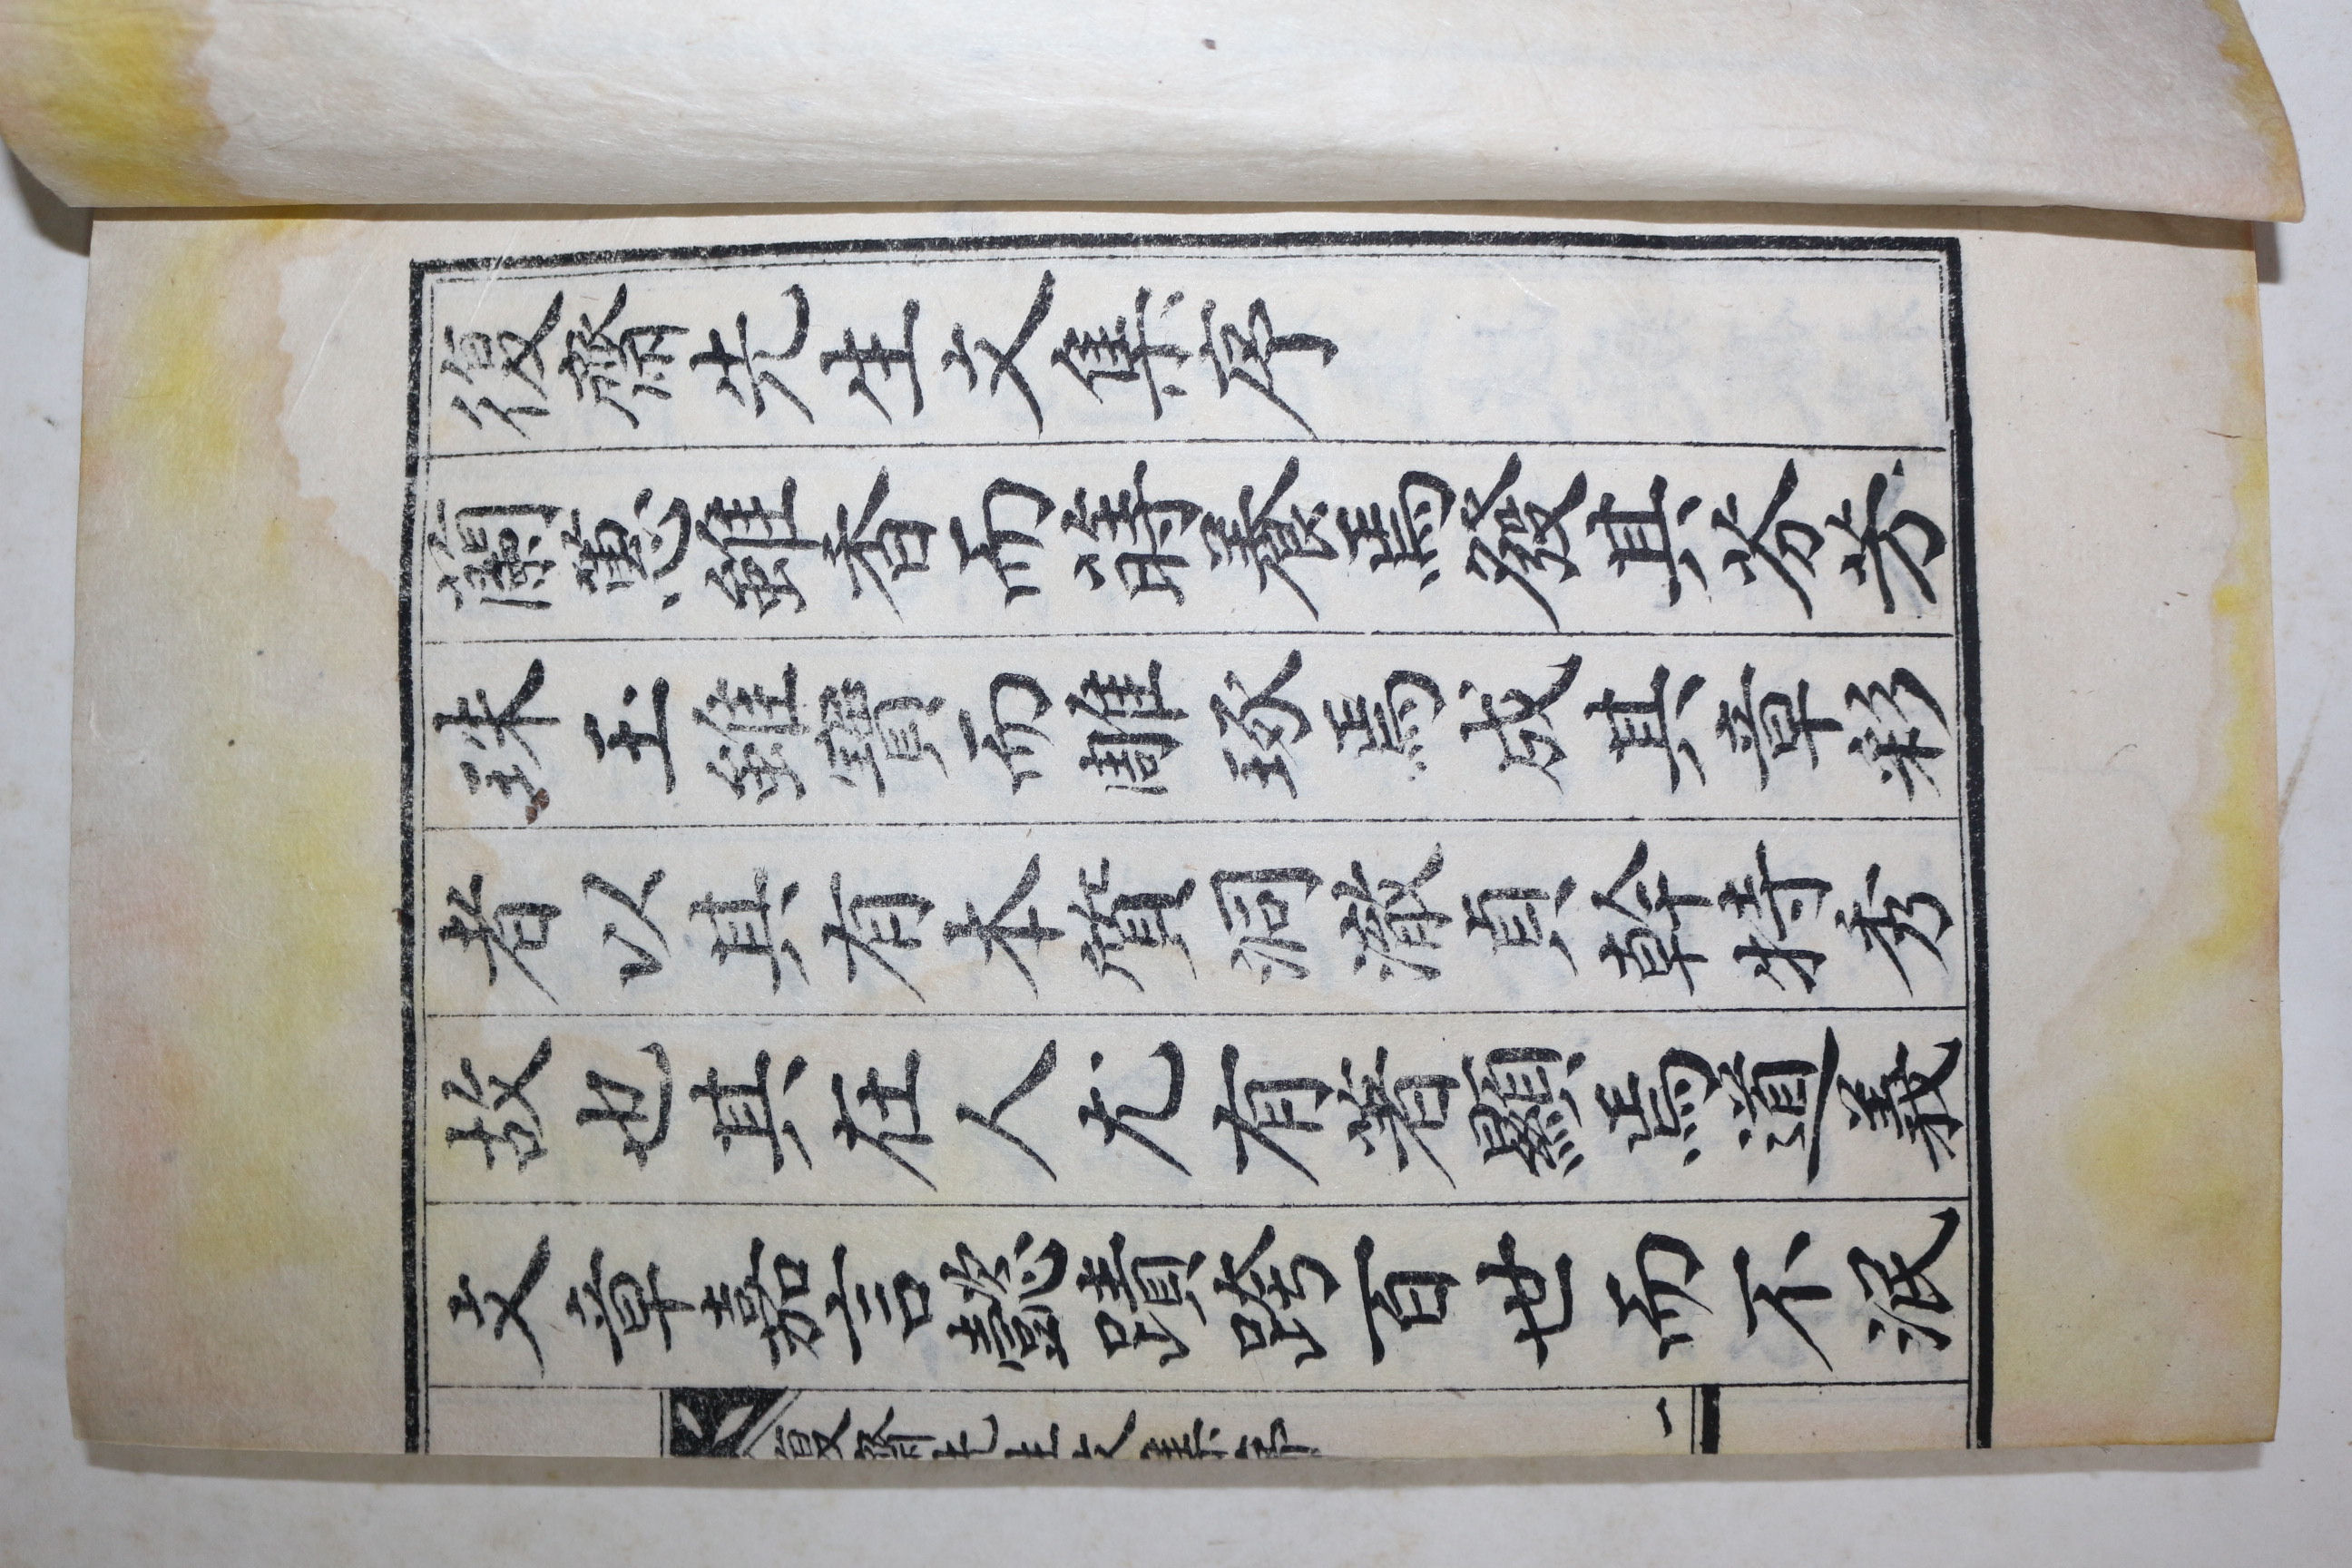 復齋先生文集序
蘭蕙雖香而蒔養焉發其芬芳
珠玉雖寶而雕琢焉成其章彩
者以其有本質洞澈貞幹特秀
故也其在人尤有著顯焉道義
文章嘉言懿蹟跨百世而不泯
復齋先生文集序
一